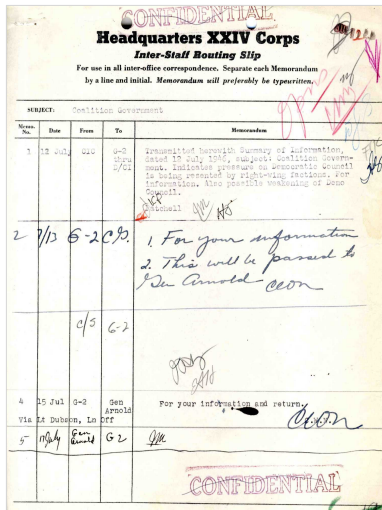 CONFIDENTIAL
Headquarters XXIV Corps
Inter-Staff Routing Slip
For use in all inter-office correspondence. Separate each Memorandum
by a line and initial. Memorandum will preferably be typewritten.
SUBJECT: Coalition Government
Memo. No. Date From To Memorandum
1 12 July CIC G-2 thru C/CI
Transmitted herewith Summary of Information,
dated 12 July 1946, subject: Coalition Govern-
ment. Indicates pressure on Democratic Council
is being resented by right-wing factions. For
information. Also possible weakening of Demo
Council.
Mitchell
2 7/13 G-2 C/S 1. For your information
2. This will be passed to
Gen Arnold
C/S G-2
4 15 Jul G-2 Gen Arnold For your information and return.
Via Lt Dubson, Ln Off
5 17 July Gen Arnold G2
CONFIDENTIAL